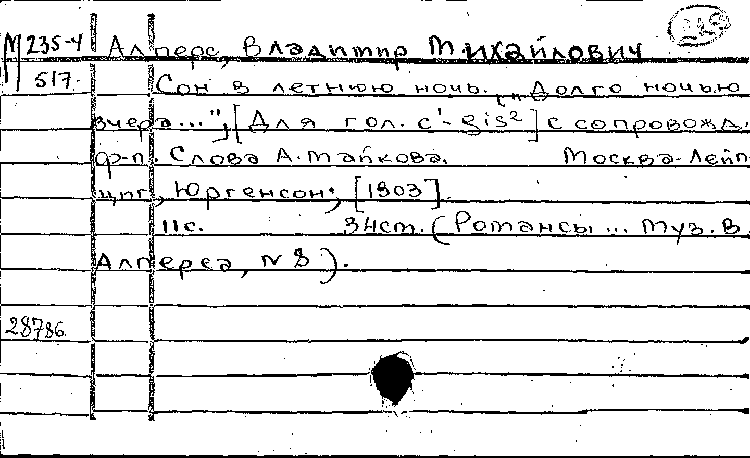 М 235-4 Алперс, Владимир Михайлович
517. Сон в летнюю ночь. ["Долго ночью
вчера...", [Для гол. c¹-gis²] с сопровожд.
ф-п. Слова А. Майкова. Москва-Лейп
циг, Юргенсон, [1903].
11с. 34см. (Романсы... Муз. В.
Алперса, N 8).
28786